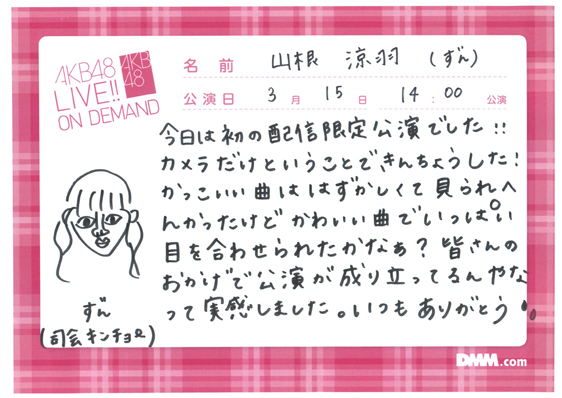 AKB48
LIVE!!
ON DEMAND
AKB
48
名前 山根 涼羽 (ずん)
公演日 3月 15日 14:00 公演
今日は初の配信限定公演でした!!
カメラだけということできんちょうした!
かっこいい曲ははずかしくて見られへ
んかったけどかわいい曲でいっぱい
目を合わせられたかなぁ？皆さんの
おかげで公演が成り立ってるんやな
って実感しました。いつもありがとう
ずん
(司会キンチョー)
DMM.com